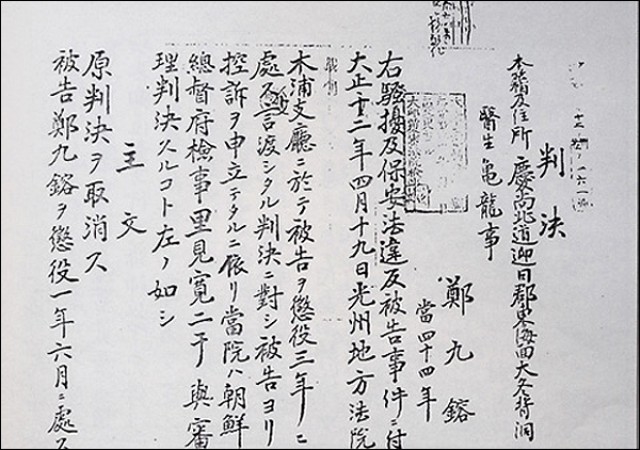 判決
本籍及住所 慶尚北道迎日郡東海面大冬背洞
醫生 亀龍事
鄭九鎔
當四十四年
右騷擾及保安法違反被告事件ニ付
大正十二年四月十九日光州地方法院
木浦支廳ニ於テ被告ヲ懲役三年ニ
處 言渡シタル判決ニ對シ被告ヨリ
控訴ヲ申立テタルニ依リ當院ハ朝鮮
總督府檢事里見寛二干與審
理判決スルコト左ノ如シ
主文
原判決ヲ取消ス
被告鄭九鎔ヲ懲役一年六月ニ處ス